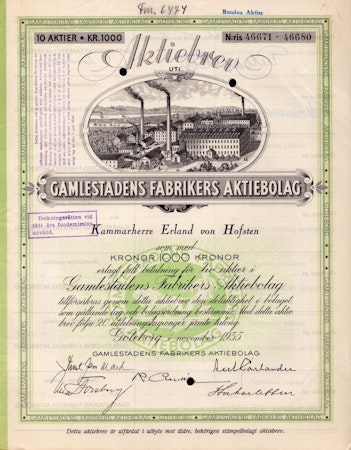 Fm. 6474
Bundna Aktier
GAMLESTADENS FABRIKERS AKTIEBOLAG GÖTEBORG
10 AKTIER ★ KR.1000
N:ris 46671 - 46680
Aktiebrev
UTI
GAMLESTADENS FABRIKERS AKTIEBOLAG
Teckningsrätten vid
1941 års fondemission
använd.
Kammarherre Erland von Hofsten
som med
KRONOR 1000 KRONOR
erlagt full betalning för tio aktier i
Gamlestadens Fabrikers Aktiebolag
tillförsäkras genom detta aktiebrev den delaktighet i bolaget
som gällande lag och bolagsordning bestämma. Med detta aktie-
brev följa 20 utdelningskuponger jämte talong.
Göteborg i november 1935
GAMLESTADENS FABRIKERS AKTIEBOLAG
Detta aktiebrev är utfärdat i utbyte mot äldre, behörigen stämpelbelagt aktiebrev.